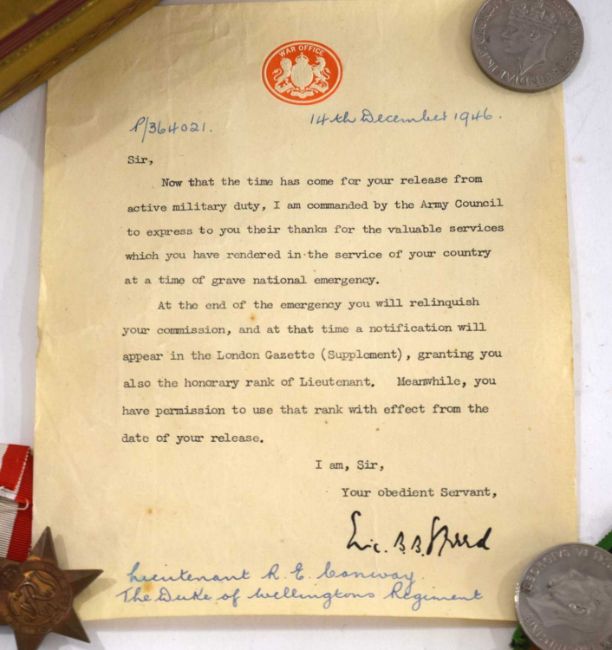 WAR OFFICE
P/364021.
14th December 1946.
Sir,
Now that the time has come for your release from
active military duty, I am commanded by the Army Council
to express to you their thanks for the valuable services
which you have rendered in the service of your country
at a time of grave national emergency.
At the end of the emergency you will relinquish
your commission, and at that time a notification will
appear in the London Gazette (Supplement), granting you
also the honorary rank of Lieutenant. Meanwhile, you
have permission to use that rank with effect from the
date of your release.
I am, Sir,
Your obedient Servant,
Eric B.B. Speed
Lieutenant R. E. Conway.
The Duke of Wellingtons Regiment